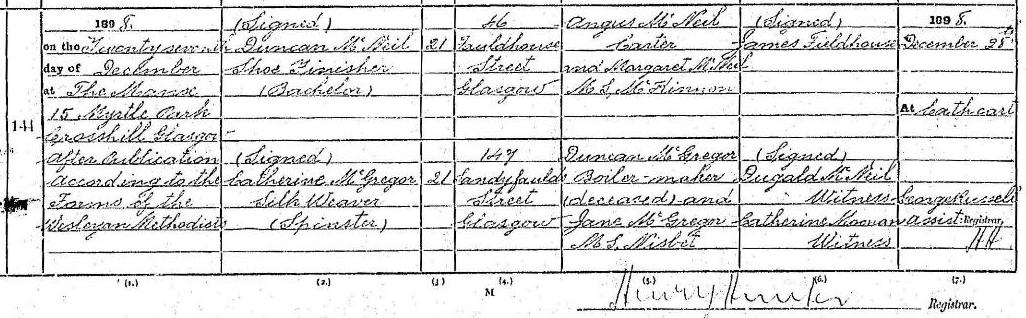 1898.
on the Twenty seventh
day of December
at The Manse
15 Myrtle Park
Crosshill Glasgow
After Publication
According to the
Forms of the
Wesleyan Methodists
(Signed)
Duncan McNeil
Shoe Finisher
(Bachelor)
(Signed)
Catherine McGregor
Silk Weaver
(Spinster)
21
21
46
Fauldhouse
Street
Glasgow
147
Sandyfaulds
Street
Glasgow
Angus McNeil
Carter
and Margaret McNeil
M.S. McKinnon
Duncan McGregor
Boiler-maker
(deceased) and
Jane McGregor
M.S. Nisbet
(Signed)
James Fieldhouse
(Signed)
Dugald McNeil
Witness
Catherine Noonan
Witness
1898.
December 28th
At Cathcart
George Russell
Assist. Registrar,
HH
144
(1.) (2.) (3.) (4.) (5.) (6.) (7.)
M
Henry Hunter Registrar.